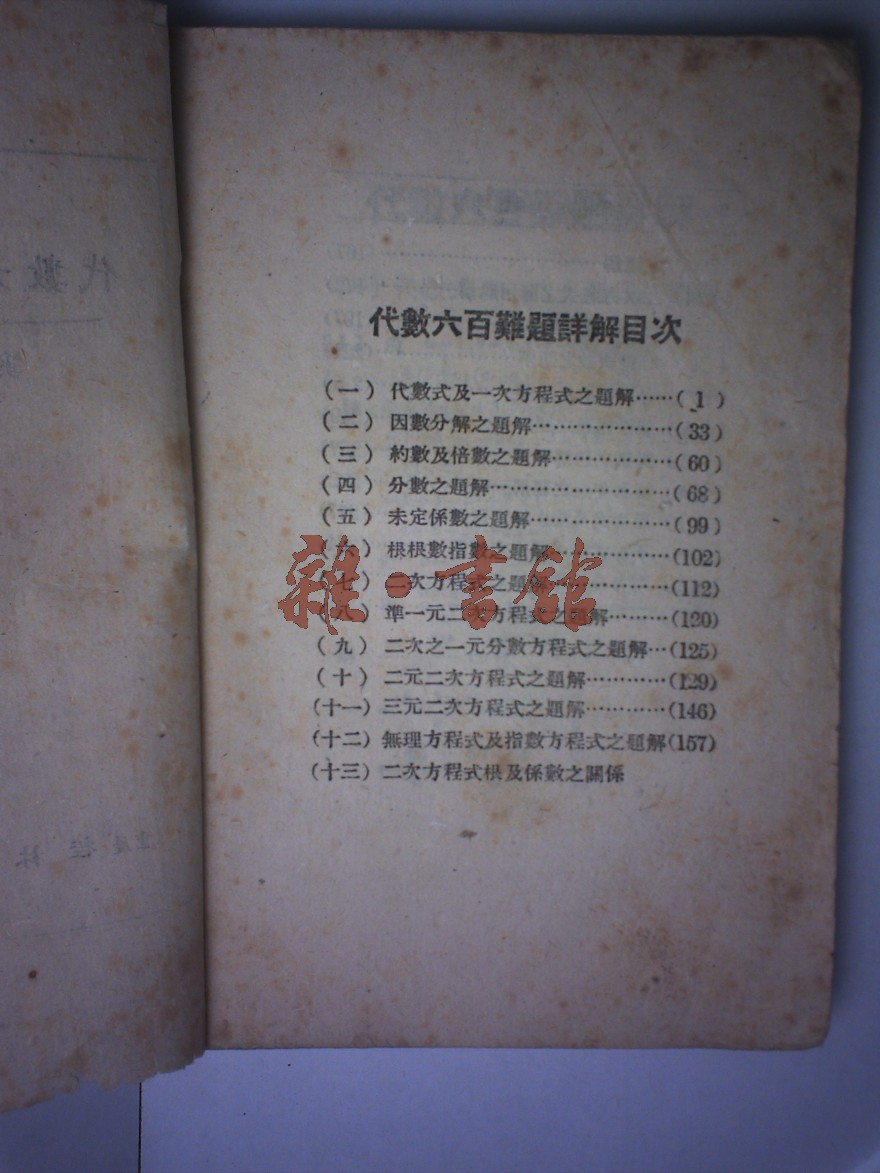 代數
代數六百難題詳解目次
(一) 代數式及一次方程式之題解……(1)
(二) 因數分解之題解…………………(33)
(三) 約數及倍數之題解………………(60)
(四) 分數之題解………………………(68)
(五) 未定係數之題解…………………(99)
(六) 根根數指數之題解………………(102)
(七) 二次方程式之題解………………(112)
(八) 準一元二次方程式之題解………(120)
(九) 二次之一元分數方程式之題解…(125)
(十) 二元二次方程式之題解…………(129)
(十一) 三元二次方程式之題解…………(146)
(十二) 無理方程式及指數方程式之題解(157)
(十三) 二次方程式根及係數之關係
雜·書館